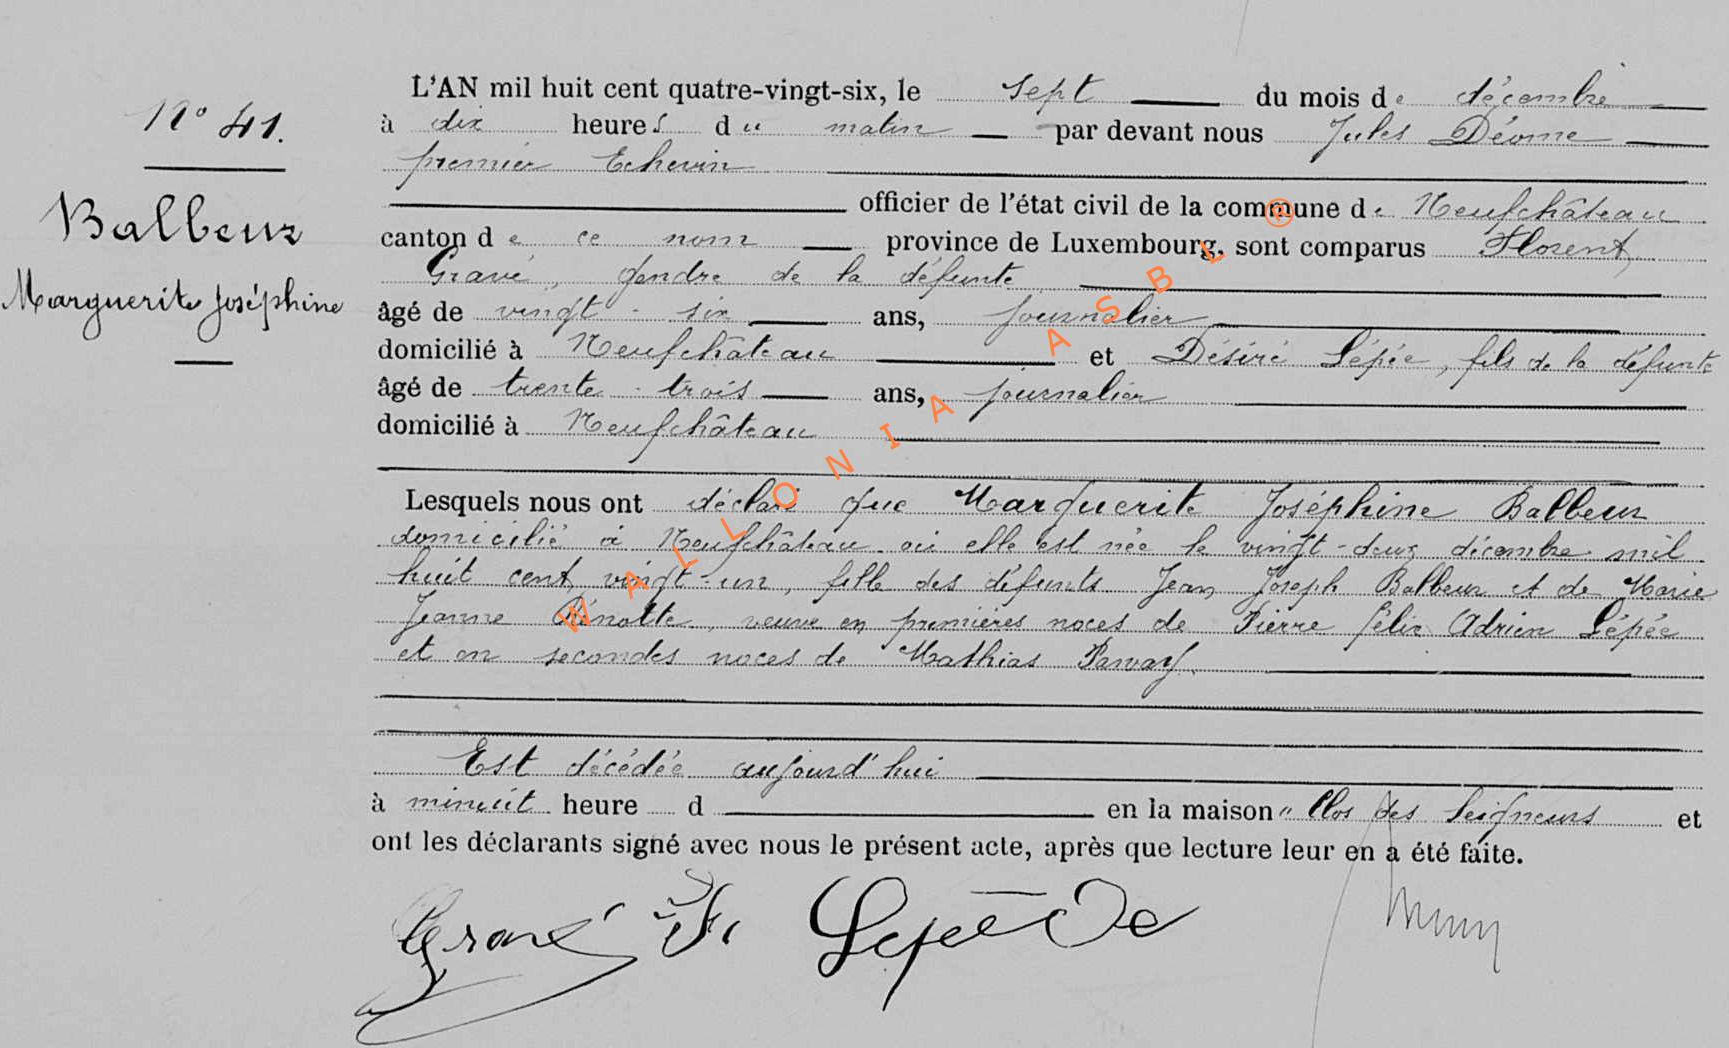 N° 41.
Balbeur
Marguerite Joséphine
L'AN mil huit cent quatre-vingt-six, le sept du mois de décembre
à dix heures du matin par devant nous Jules Déome
premier Echevin
officier de l'état civil de la commune de Neufchâteau
canton de ce nom province de Luxembourg, sont comparus Florent
Gravé, gendre de la défunte
âgé de vingt-six ans, journalier
domicilié à Neufchâteau et Désiré Lépée, fils de la défunte
âgé de trente-trois ans, journalier
domicilié à Neufchâteau
Lesquels nous ont déclaré que Marguerite Joséphine Balbeur
domicilié à Neufchâteau où elle est née le vingt-deux décembre mil
huit cent vingt-un, fille des défunts Jean Joseph Balbeur et de Marie
Jeanne veuve en premières noces de Pierre Félix Adrien Lépée
et en secondes noces de Mathias
Est décédée aujourd'hui
à minuit heure d en la maison "Clos des Seigneurs et
ont les déclarants signé avec nous le présent acte, après que lecture leur en a été faite.
Gravé Lepée De
WALLONIA ASBL ®